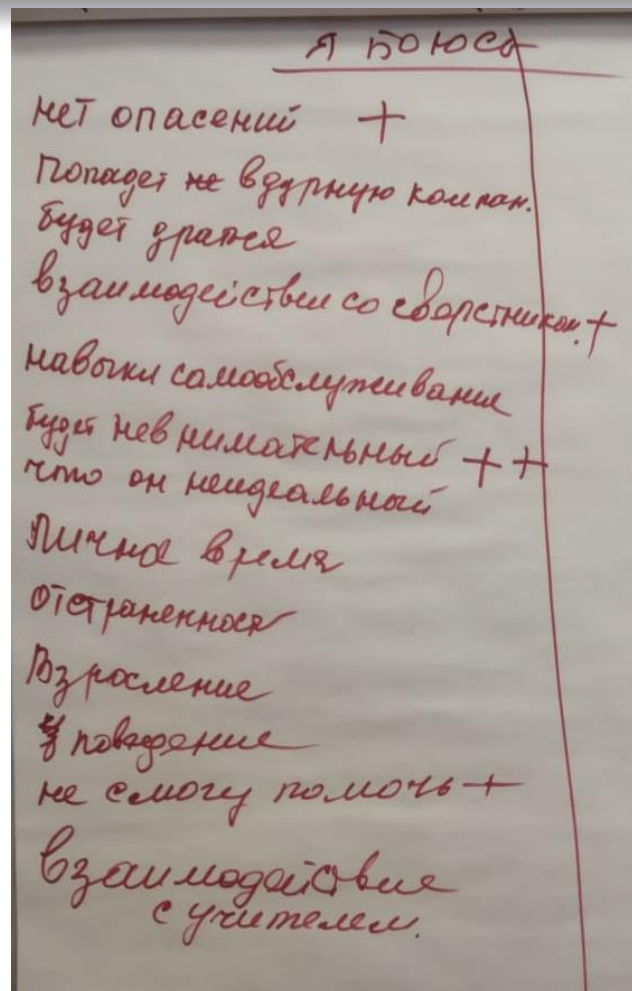 Я БОЮСЬ
нет опасений +
Попадет не в дурную компан.
будет драться
взаимодействии со сверстником. +
навыки самообслуживания
будет невнимательный ++
что он неидеальный
Личное время
отстраненность
Взросление
поведение
не смогу помочь +
Взаимодействие
с учителем.